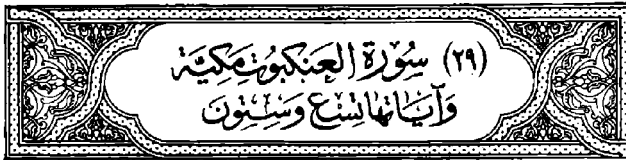 (٢٩) سُورَةُ العَنكَبُوتِ مَكِيَّة
وَآيَاتُهَا تِسْع وَسِتُّونَ